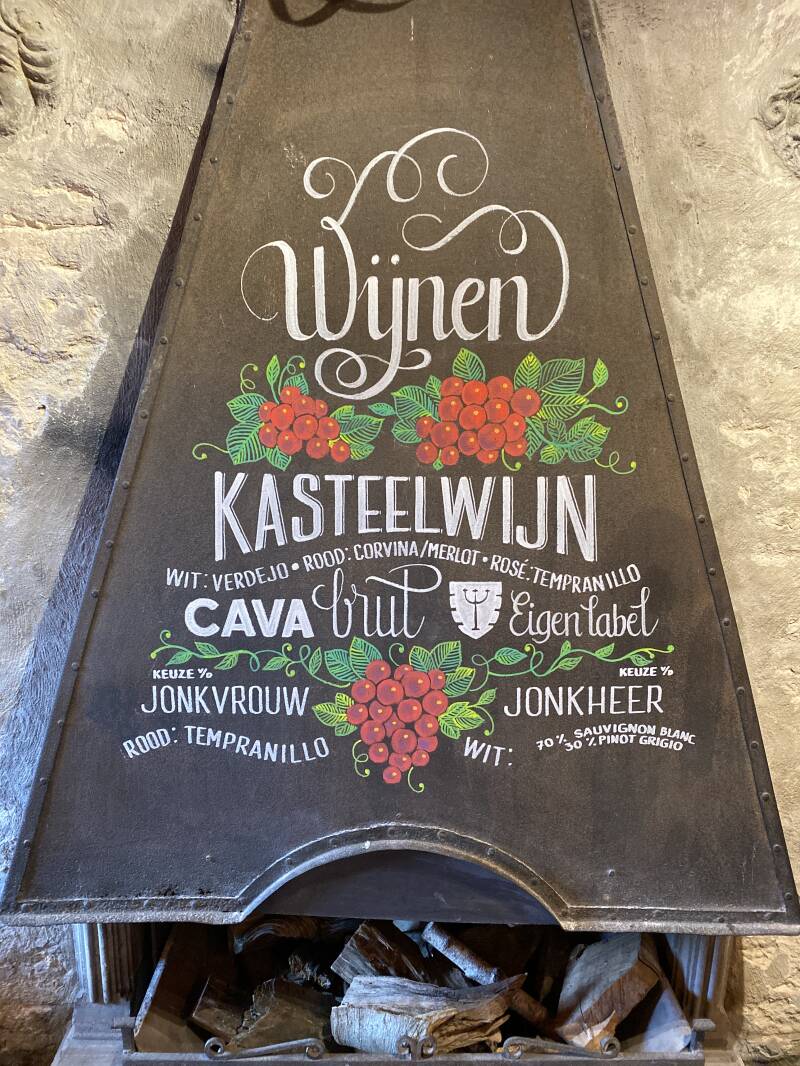 Wijnen
KASTEELWIJN
WIT: VERDEJO • ROOD: CORVINA/MERLOT • ROSÉ: TEMPRANILLO
CAVA brut Eigen label
KEUZE V/D KEUZE V/D
JONKVROUW JONKHEER
ROOD: TEMPRANILLO WIT: 70% SAUVIGNON BLANC
30% PINOT GRIGIO